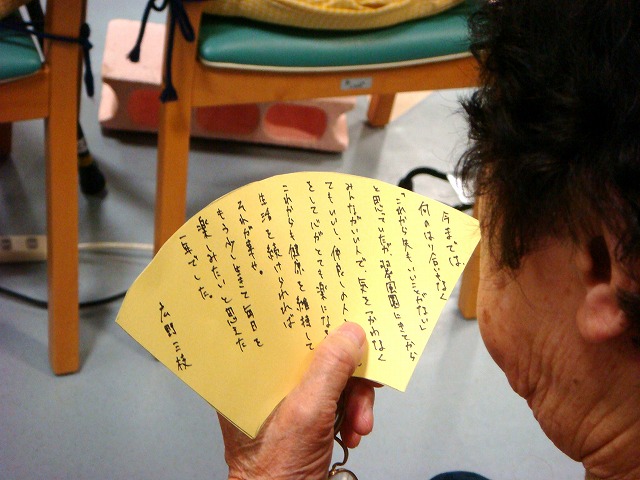 今までは
何のはり合いもなく
「これから先もいいことがない」
と思っていたが翠園にきてから
みんながいい人で、気をつかわなく
てもいいし、仲良しの人
をして心がとても楽にな
これからも健康を維持して
生活を続けられれば
それが幸せ。
もう少し生きて毎日を
楽しみたいと思えた
一年でした。
広野三枝